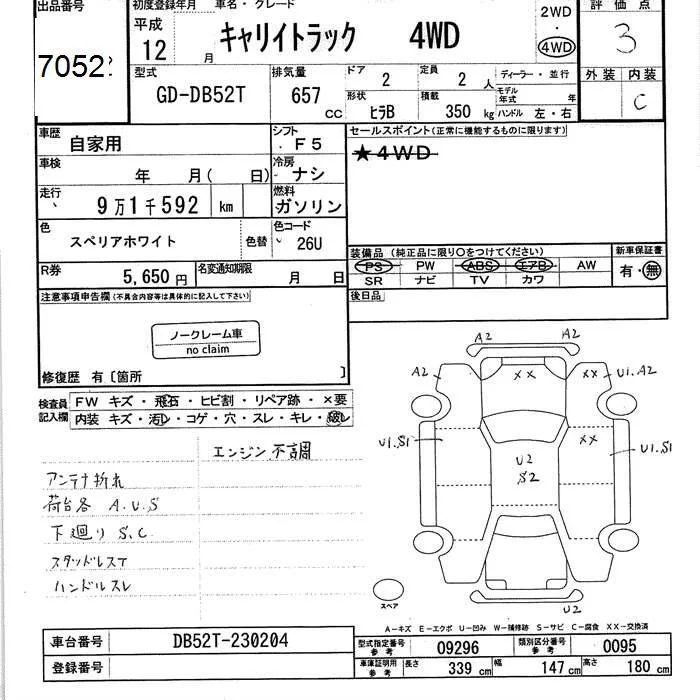 出品番号 初度登録年月 車名・グレード 評価点
7052 平成 12 月 キャリイトラック 4WD 2WD・4WD 3
型式 排気量 ドア 定員 ディーラー・並行 外装 内装
GD-DB52T 657 cc 2 2 人 モデル年式 年 C
形状 ヒラB 積載 350 kg ハンドル 左・右
車歴 自家用 シフト F5 セールスポイント(正常に機能するものに限ります)
車検 年 月( 日) 冷房 ナシ ★4WD
走行 9万1千592 km 燃料 ガソリン
色 スペリアホワイト 色替 色コード 26U
装備品(純正品に限り○をつけてください) 新車保証書
PS PW ABS エアB AW 有・無
SR ナビ TV カワ
R券 5,650円 名変通知期限 月 日
注意事項申告欄(不具合内容等は具体的に記入して下さい) 後日品
ノークレーム車
no claim
修復歴 有〔箇所 〕
検査員記入欄 FW キズ・飛石・ヒビ割・リペア跡・×要
内装 キズ・汚れ・コゲ・穴・スレ・キレ・破れ
エンジン不調
アンテナ折れ
荷台各 A.U.S
下廻り S.C
スタッドレスT
ハンドルスレ
A2 A2
A2 ×× ×× U1.A2
U1.S1 ×× U1.S1
U2
S2
スペア U2
A-キズ E-エクボ U-凹み W-補修跡 S-サビ C-腐食 XX-交換済
車台番号 DB52T-230204 型式指定番号 参考 09296 類別区分番号 参考 0095
登録番号 車庫証明用 参考 長さ 339 cm 幅 147 cm 高さ 180 cm